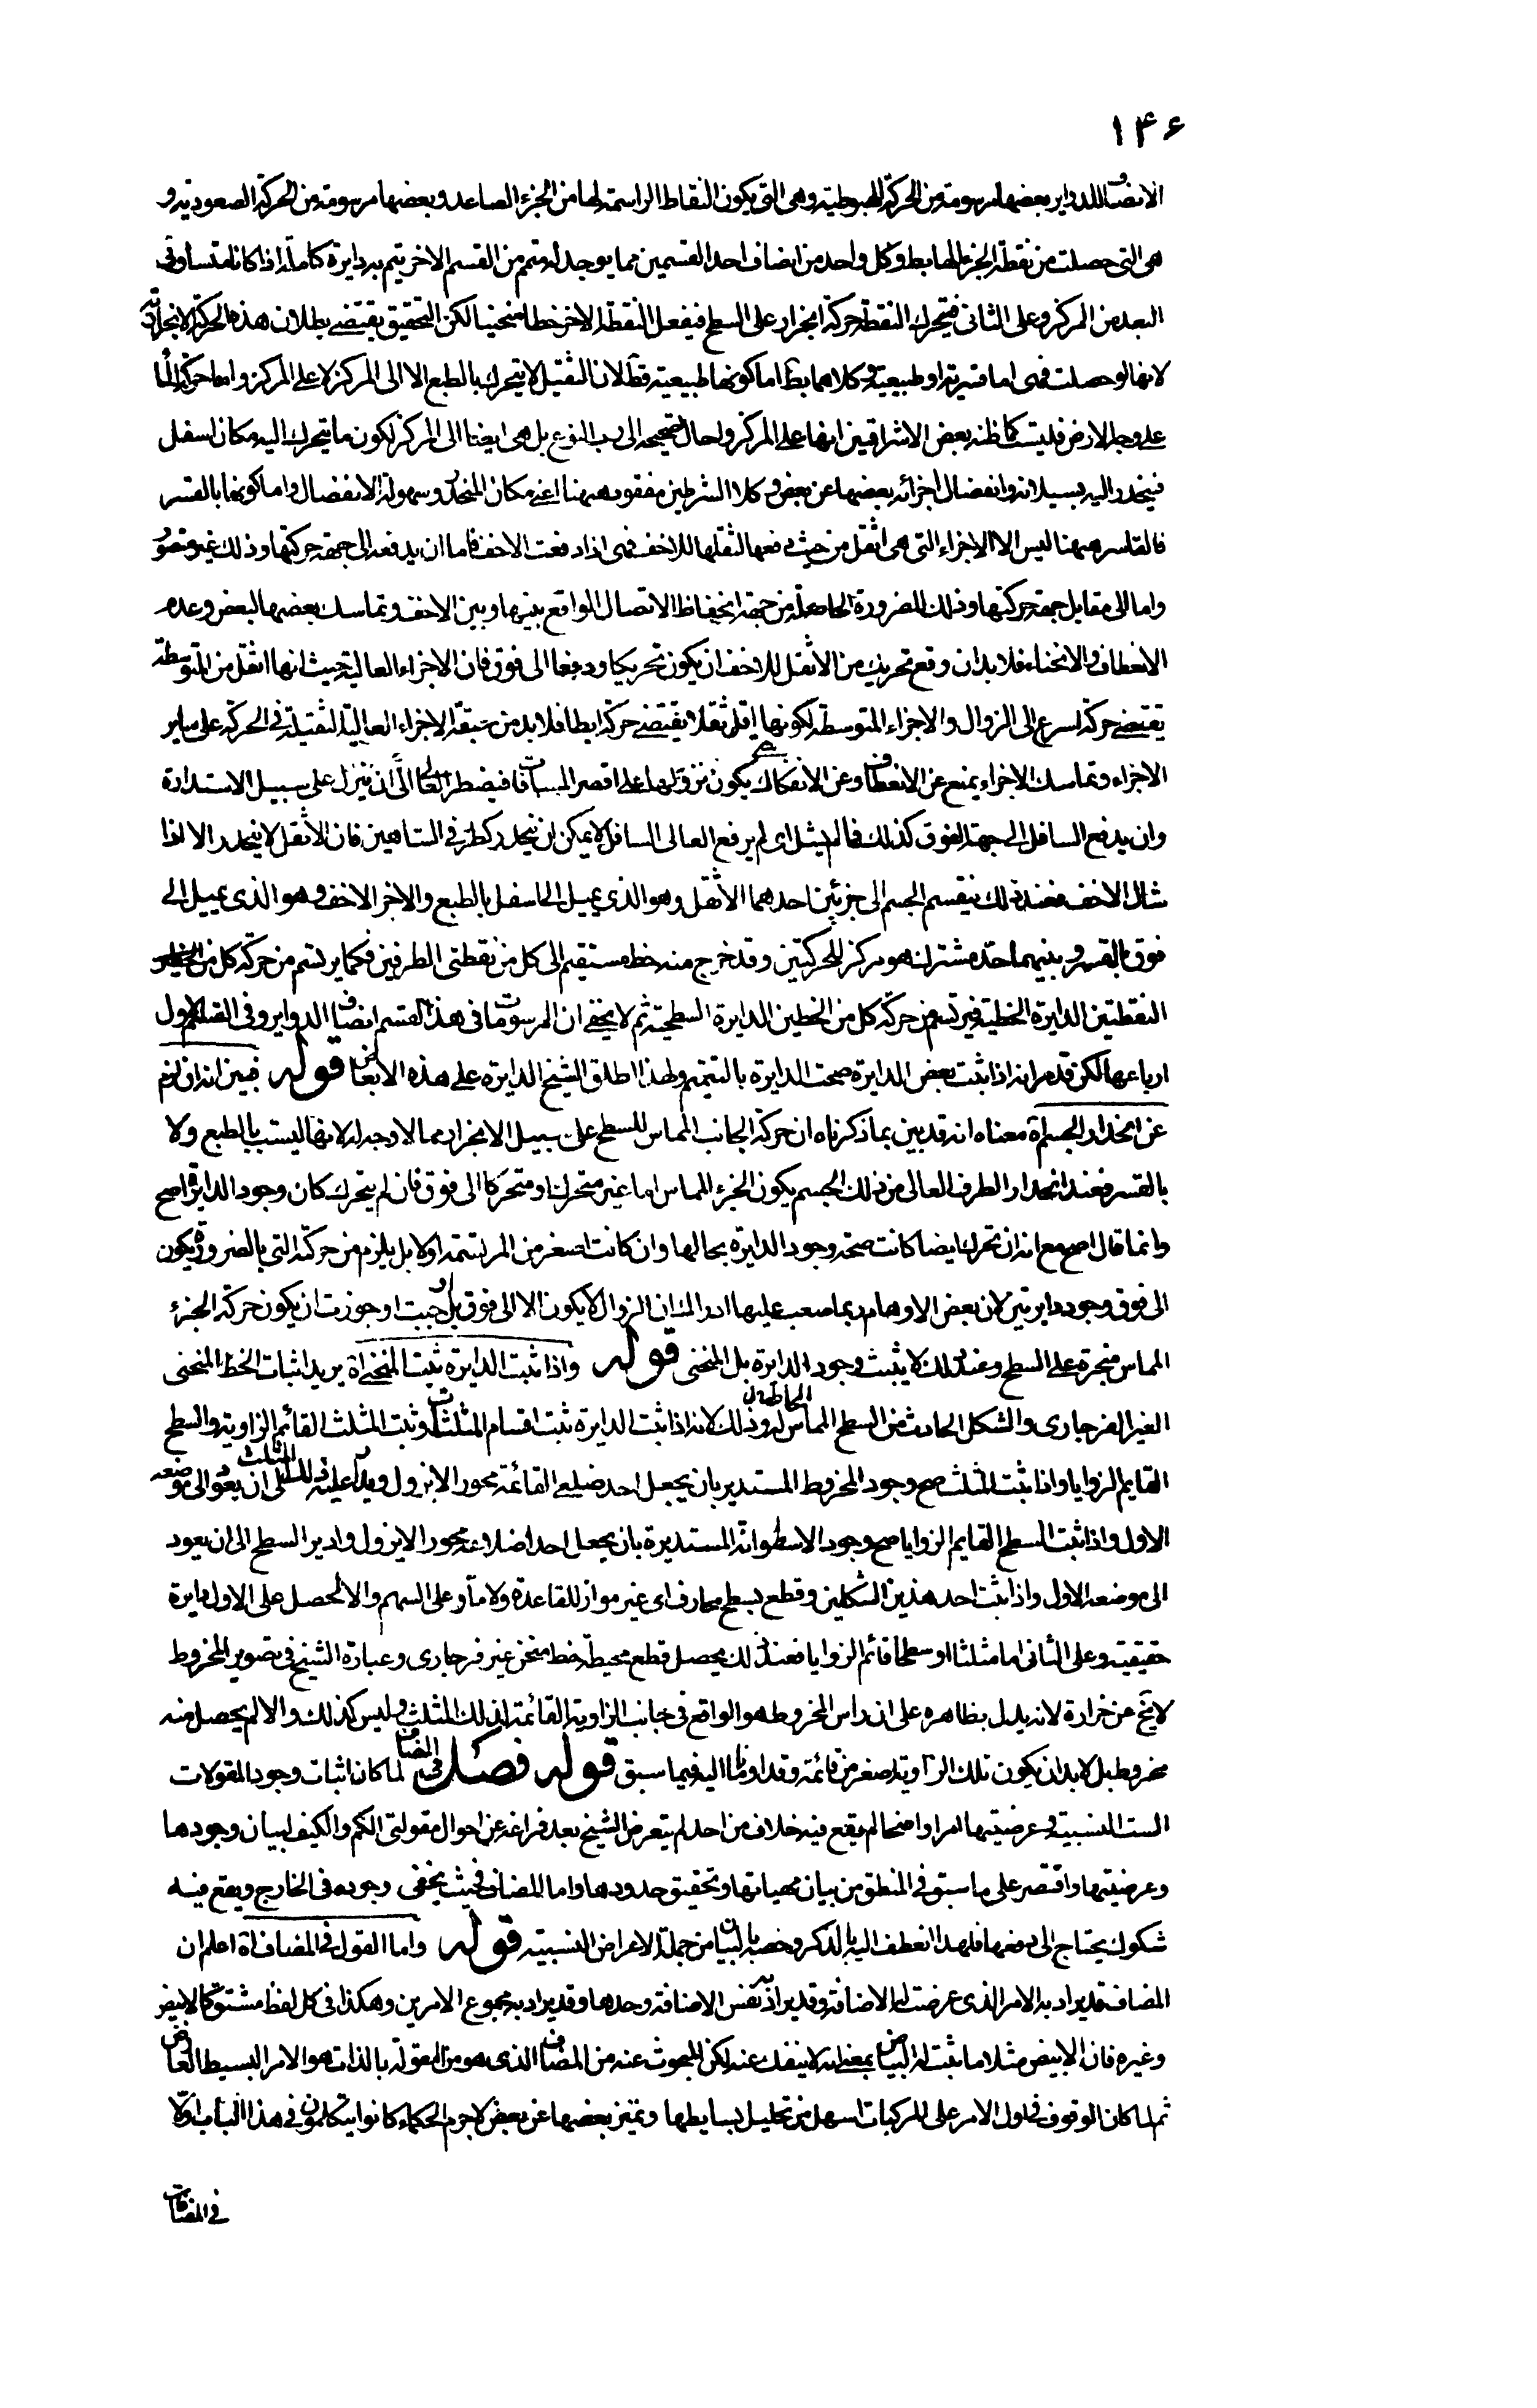 ۱۴۶
الانصاف للدواير بعضها مرسومة من الحركة الهبوطية وهى التى يكون النقاط الراسمة لها من الجزء الصاعد وبعضها مرسومة من الحركة الصعودية و
هى التى حصلت من نقطة الجزء الهابط وكل واحد من انصاف احد القسمين مما يوجد له متمم من القسم الاخر يتم به دايرة كاملة اذا كانا متساوى
البعد من المركز وعلى الثانى فيتحرك النقطة حركة انجرار على السطح فيفعل النقطة الاخر خطا منحنيا لكن التحقيق يقتضى بطلان هذه الحركة الانجرارية
لانها لو حصلت فهى اما قسرية او طبيعية وكلاهما بط اما كونها طبيعية فظ لان الثقيل لا يتحرك بالطبع الا الى المركز لا على المركز واما حركة الماء
على وجه الارض فليست كما ظنه بعض الاشراقيين انها على المركز واحال تصحيحه الى رب النوع بل هى ايضا الى المركز لكون ما يتحرك اليه مكان اسفل
فينحدر اليه بسيلانه وانفصال اجزائه بعضها عن بعض وكلا الشرطين مفقود ههنا اعنى مكان المنحدر وسهولة الانفصال واما كونها بالقسر
فالقاسر ههنا ليس الا الاجزاء التى هى اثقل من حيث دفعها لثقلها للاخف فهى اذا دفعت الاخف فاما ان يدفعه الى جهة حركتها وذلك غير متصور
واما الى مقابل جهة حركتها وذلك للضرورة الحاصلة من جهة انحفاظ الاتصال الواقع بينها وبين الاخف وتماسك بعضها لبعض وعدم
الانعطاف والانحناء فلا بد ان وقع تحريك من الاثقل للاخف ان يكون تحريكا ودفعا الى فوق فان الاجزاء العالية حيث انها اثقل من المتوسطة
يقتضى حركة اسرع الى الزوال والاجزاء المتوسطة لكونها اقل ثقلا يقتضى حركة ابطا فلا بد من سبقة الاجزاء العالية الثقيلة فى الحركة على ساير
الاجزاء وتماسك الاجزاء يمنع عن الانعطاف وعن الانفكاك يكون نزولها على اقصر المسافات فيضطر العالى الى ان ينزل على سبيل الاستدارة
وان يدفع السافل الى جهة الفوق كذلك فما لم يشل اى لم يرفع العالى السافل لا يمكن ان ينحدر كطرفى الشاهين فان الاثقل لا ينحدر الا اذا
شال الاخف فعند ذلك ينقسم الجسم الى جزئين احدهما الاثقل وهو الذى يميل الى اسفل بالطبع والاخر الاخف وهو الذى يميل الى
فوق بالقسر وبينهما حد مشترك هو مركز للحركتين وقد خرج منه خط مستقيم الى كل من نقطتى الطرفين فكما يرتسم من حركة كل من
النقطتين الدايرة الخطية فيرتسم من حركة كل من الخطين الدايرة السطحية ثم لا يخفى ان المرسومات فى هذا القسم انصاف الدواير وفى القسم الاول
ارباعها لكن قد مر انه اذا ثبت بعض الدايرة صحت الدايرة بالتتميم ولهذا اطلق الشيخ الدايرة على هذه الابعاض قوله فبين انه ان لزم
عن انحدار الجسم اه معناه انه قد بين بما ذكرناه ان حركة الجانب المماس للسطح على سبيل الانجرار مما لا وجه له لانها ليست بالطبع ولا
بالقسر فعند انحدار الطرف العالى من ذلك الجسم يكون الجزء المماس اما غير متحرك او متحركا الى فوق فان لم يتحرك كان وجود الدايرة اصح
وانما قال اصح مع انه ان تحرك ايضا كانت صحة وجود الدايرة بحالها وان كانت اصغر من المرتسمة اولا بل يلزم من حركة التى بالضرورة يكون
الى فوق وجود دايرتين لان بعض الاوهام ربما صعب عليها ادراك ان الزوال لا يكون الا الى فوق بل حسبت او جوزت ان يكون حركة الجزء
المماس منجرة على السطح وعند ذلك لا يثبت وجود الدايرة بل المنحنى قوله واذا ثبت الدايرة ثبت المنحنى اه يريد اثبات الخط المنحنى
الغير الفرجارى والشكل الحادث من السطح المماس له وذلك لانه اذا ثبت الدايرة ثبت اقسام المثلثات وثبت المثلث القائم الزاوية والسطح
القايم الزوايا واذا ثبت المثلث صح وجود المخروط المستدير بان يجعل احد ضلعى القائمة محورا لا يزول ويدار عليه ذلك المثلث الى ان يعود الى موضعه
الاول واذا ثبت السطح القايم الزوايا صح وجود الاسطوانة المستديرة بان يجعل احد اضلاعه محورا لا يزول وادير السطح الى ان يعود
الى موضعه الاول واذا ثبت احد هذين الشكلين وقطع بسطح محارف اى غير مواز للقاعدة ولا مار على السهم والا لحصل على الاول دايرة
حقيقية وعلى الثانى اما مثلثا او سطحا قائم الزوايا فعند ذلك يحصل قطع محيطه خط منحن غير فرجارى وعبارة الشيخ فى تصوير المخروط
لا يخ عن حزازة لانه يدل بظاهره على ان راس المخروط هو الواقع فى جانب الزاوية القائمة لذلك المثلث وليس كذلك والا لم يحصل منه
مخروط بل لا بد ان يكون تلك الزاوية اصغر من قائمة وقد اومانا اليه فيما سبق قوله فصل فى المضاف لما كان اثبات وجود المقولات
الست النسبية وعرضيتها امرا واضحا لم يقع فيه خلاف من احد لم يتعرض الشيخ بعد فراغه عن احوال مقولتى الكم والكيف لبيان وجودها
وعرضيتها واقتصر على ما سبق فى المنطق من بيان مهياتها وتحقيق حدودها واما المضاف فحيث يخفى وجوده فى الخارج ويقع فيه
شكوك يحتاج الى دفعها فلهذا انعطف اليه بالذكر وخصه بالبيان من جملة الاعراض النسبية قوله واما القول فى المضاف اه اعلم ان
المضاف قد يراد به الامر الذى عرضت له الاضافة وقد يراد به نفس الاضافة وحدها وقد يراد به مجموع الامرين وهكذا فى كل لفظ مشتق كالابيض
وغيره فان الابيض مثلا ما ثبت له البياض بمعنى انه لا ينفك عنه لكن المبحوث عنه من المضاف الذى هو من المقولة بالذات هو الامر البسيط العارض
ثم لما كان الوقوف فى اول الامر على المركبات اسهل من تحليل بسايطها وتميز بعضها عن بعض لا جرم الحكماء كانوا يتكلمون فى هذا الباب اولا
فى المضافات